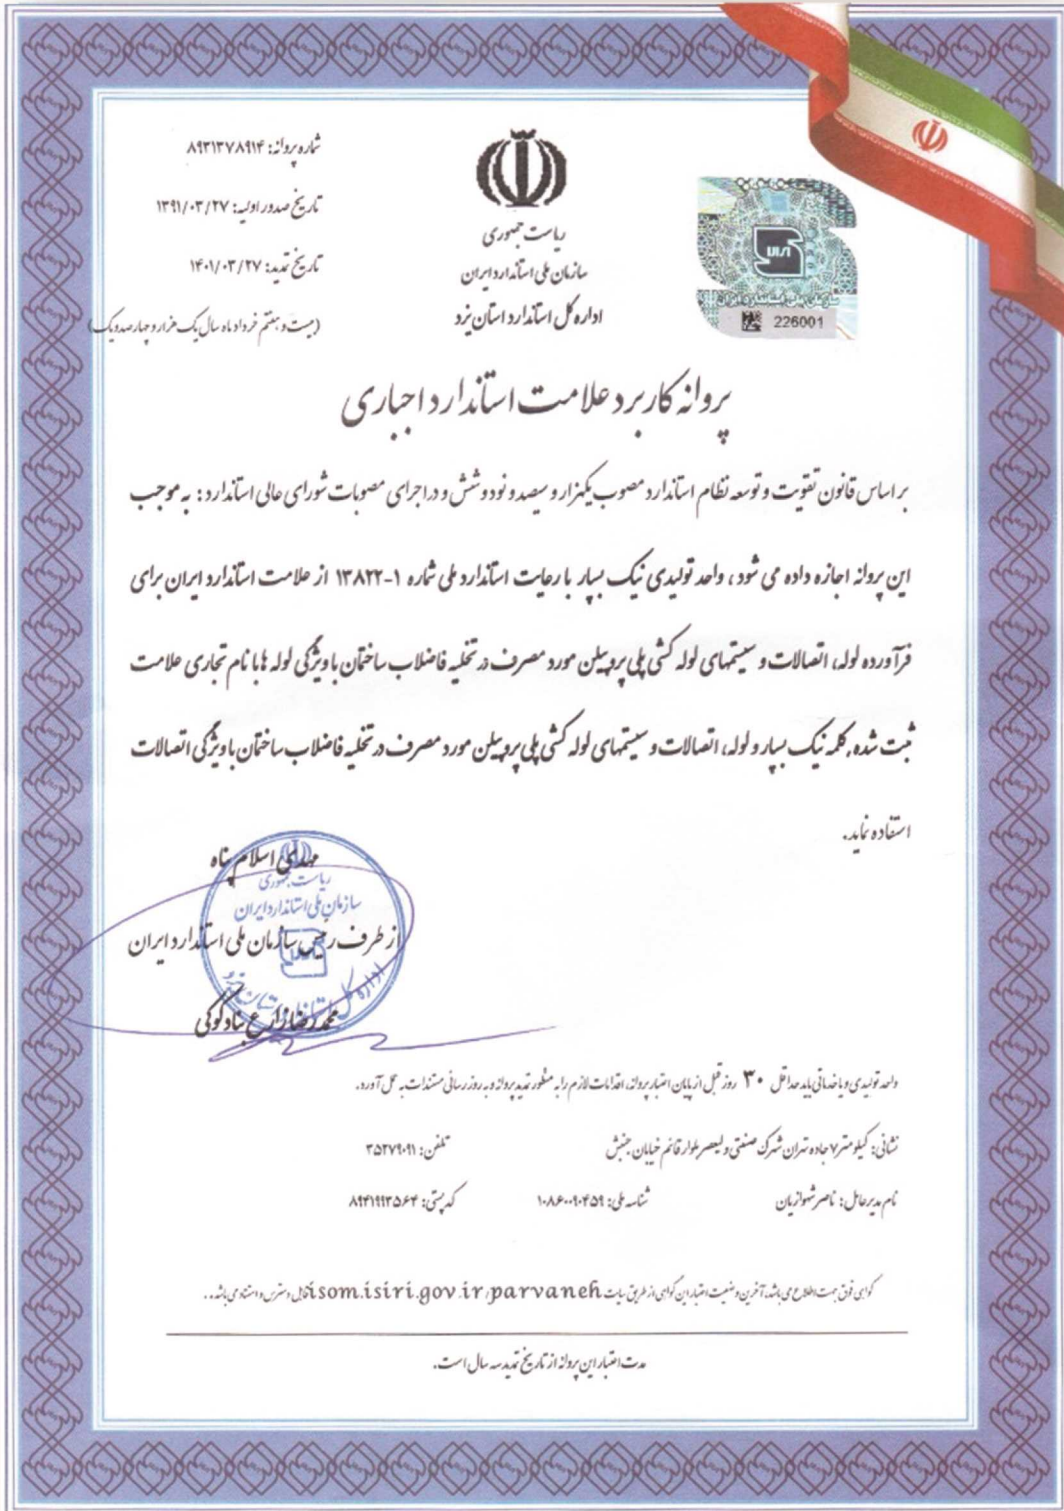 شماره پروانه: ۸۹۳۱۳۷۸۹۱۴
تاریخ صدور اولیه: ۱۳۹۱/۰۳/۲۷
تاریخ تمدید: ۱۴۰۱/۰۳/۲۷
(بیست و هفتم خرداد ماه سال یک هزار و چهارصد و یک)
ریاست جمهوری
سازمان ملی استاندارد ایران
اداره کل استاندارد استان یزد
سازمان ملی استاندارد ایران
226001
پروانه کاربرد علامت استاندارد اجباری
بر اساس قانون تقویت و توسعه نظام استاندارد مصوب یکهزار و سیصد و نود و شش و در اجرای مصوبات شورای عالی استاندارد : به موجب
این پروانه اجازه داده می شود ، واحد تولیدی نیک بسپار با رعایت استاندارد ملی شماره ۱-۱۳۸۲۲ از علامت استاندارد ایران برای
فرآورده لوله، اتصالات و سیستمهای لوله کشی پلی پروپیلن مورد مصرف در تخلیه فاضلاب ساختمان با ویژگی لوله ها با نام تجاری علامت
ثبت شده، کلمه نیک بسپار و لوله، اتصالات و سیستمهای لوله کشی پلی پروپیلن مورد مصرف در تخلیه فاضلاب ساختمان با ویژگی اتصالات
استفاده نماید.
مهدی اسلام پناه
ریاست جمهوری
سازمان ملی استاندارد ایران
از طرف رییس سازمان ملی استاندارد ایران
اداره کل استاندارد استان یزد
محمدرضا زارع بنادکوکی
واحد تولیدی و یا خدماتی باید حداقل ۳۰ روز قبل از پایان اعتبار پروانه، اقدامات لازم را به منظور تمدید پروانه و به روز رسانی مستندات به عمل آورد.
نشانی: کیلومتر ۷ جاده تهران شهرک صنعتی ولیعصر بلوار قائم خیابان جنبش
تلفن: ۳۵۲۷۹۰۹۱
نام مدیرعامل: ناصر شهوازیان
شناسه ملی: ۱۰۸۶۰۰۹۰۴۵۹
کد پستی: ۸۹۴۱۹۹۳۵۶۴
گواهی فوق جهت اطلاع می باشد، آخرین وضعیت اعتبار این گواهی از طریق سایت isom.isiri.gov.ir/parvaneh قابل دسترس و استناد می باشد..
مدت اعتبار این پروانه از تاریخ تمدید سه سال است.